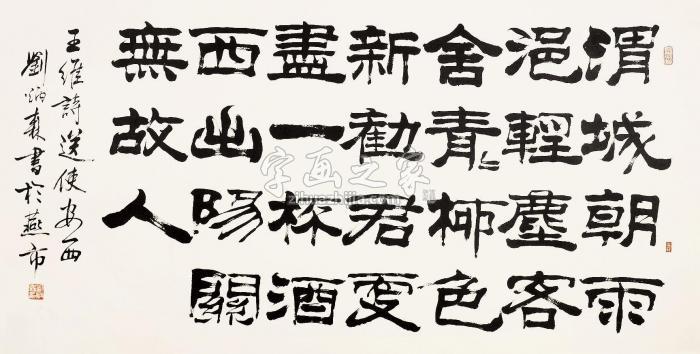 渭城朝雨
浥輕塵客
舍青〻柳色
新勸君更
盡一杯酒
西出陽關
無故人
王維詩送使安西
劉炳森書於燕市
字画之家
zihuazhijia.com